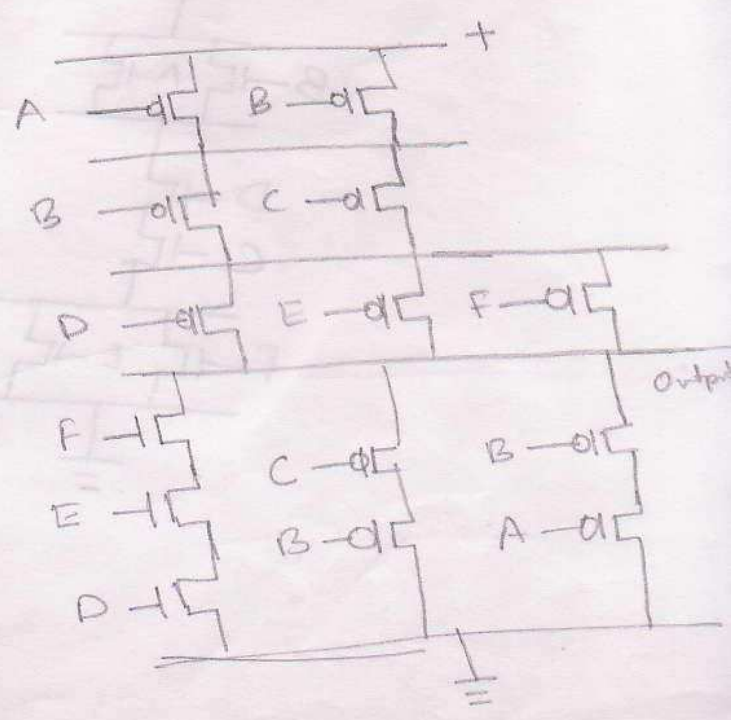 +
A B
B C
D E F
Output
F
C B
E
B A
D